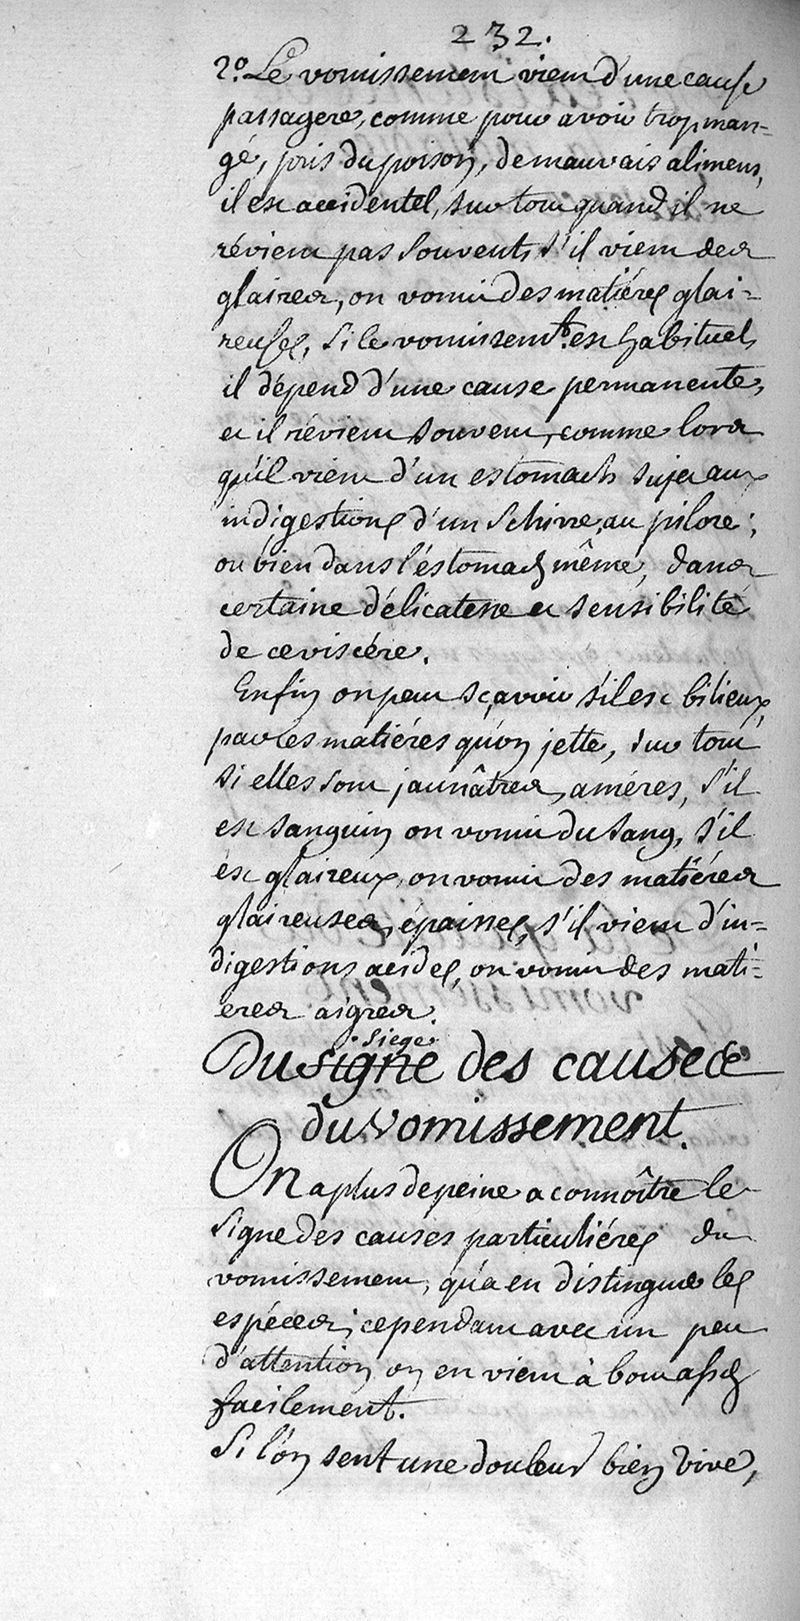 232.
2.° Le vomissement vient d'une cause
passagere, comme pour avoir trop man=
gé, pris du poison, de mauvais alimens,
il est accidentel, sur tout quand il ne
révient pas souvent, s'il vient des
glaires, on vomit des matiéres glai=
reuses, si le vomissem.t est habituel,
il dépend d'une cause permanente,
et il révient souvent, comme lors
qu'il vient d'un estomach sujet aux
indigestions d'un schirre, au pilore;
ou bien dans l'éstomach même, dans
certaine délicatesse et sensibilité
de ce viscére.
Enfin on peut sçavoir s'il est bilieux,
par les matiéres qu'on jette, sur tout
si elles sont jaunâtres, améres, s'il
est sanguin on vomit du sang, s'il
est glaireux, on vomit des matiéres
glaireuses, épaisses, s'il vient d'in=
digestions acides, on vomit des mati=
eres aigres.
siege
Du signe des causes
du vomissement.
On a plus de peine a connoître le
signe des causes particuliéres du
vomissement, qu'a en distinguer les
espéces; cependant avec un peu
d'attention on en vient à bout assés
facilement.
Si l'on sent une douleur bien vive,